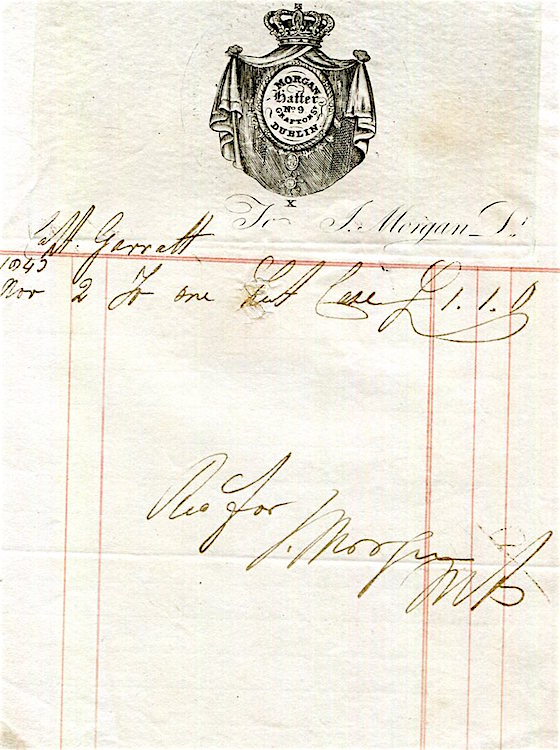 MORGAN
Hatter
No. 9
GRAFTON St
DUBLIN
X
To J. Morgan Dr.
Capt. Garratt
1843
Nov 2 To one Hat Case £1.1.0
Rec for
J. Morgan